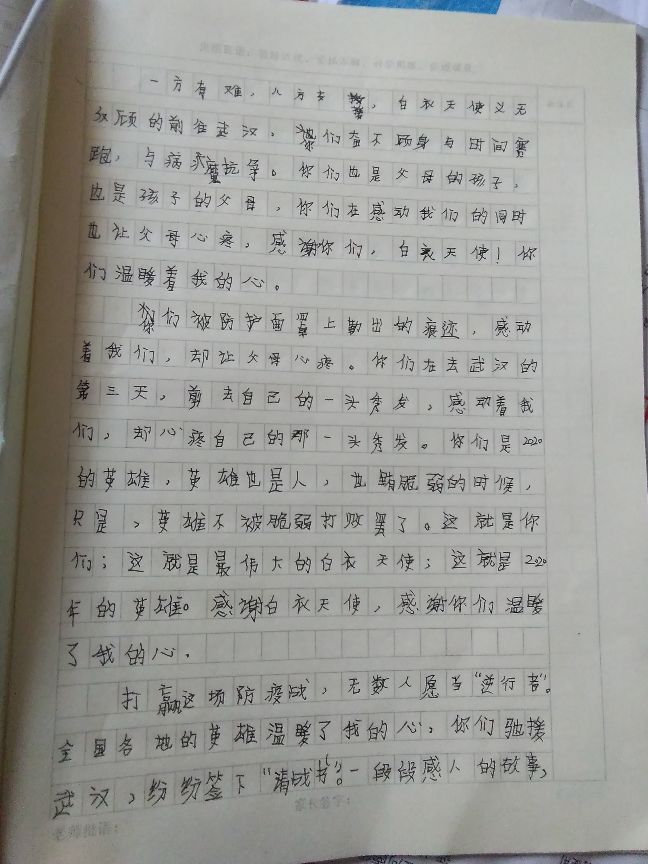 一方有难，八方支援，白衣天使义无
反顾的前往武汉，你们奋不顾身与时间赛
跑，与病魔抗争。你们也是父母的孩子，
也是孩子的父母，你们在感动我们的同时
也让父母心疼，感谢你们，白衣天使！你
们温暖着我的心。
你们被防护面罩上勒出的痕迹，感动
着我们，却让父母心疼。你们在去武汉的
第三天，剪去自己的一头秀发，感动着我
们，却心疼自己的那一头秀发。你们是2020
的英雄，英雄也是人，也有脆弱的时候，
只是，英雄不被脆弱打败罢了。这就是你
们；这就是最伟大的白衣天使；这就是2020
年的英雄。感谢白衣天使，感谢你们温暖
了我的心。
打赢这场防疫战，无数人愿当“逆行者”。
全国各地的英雄温暖了我的心，你们驰援
武汉，纷纷签下“请战书”。一段段感人的故事，
家长签字：
老师批语：